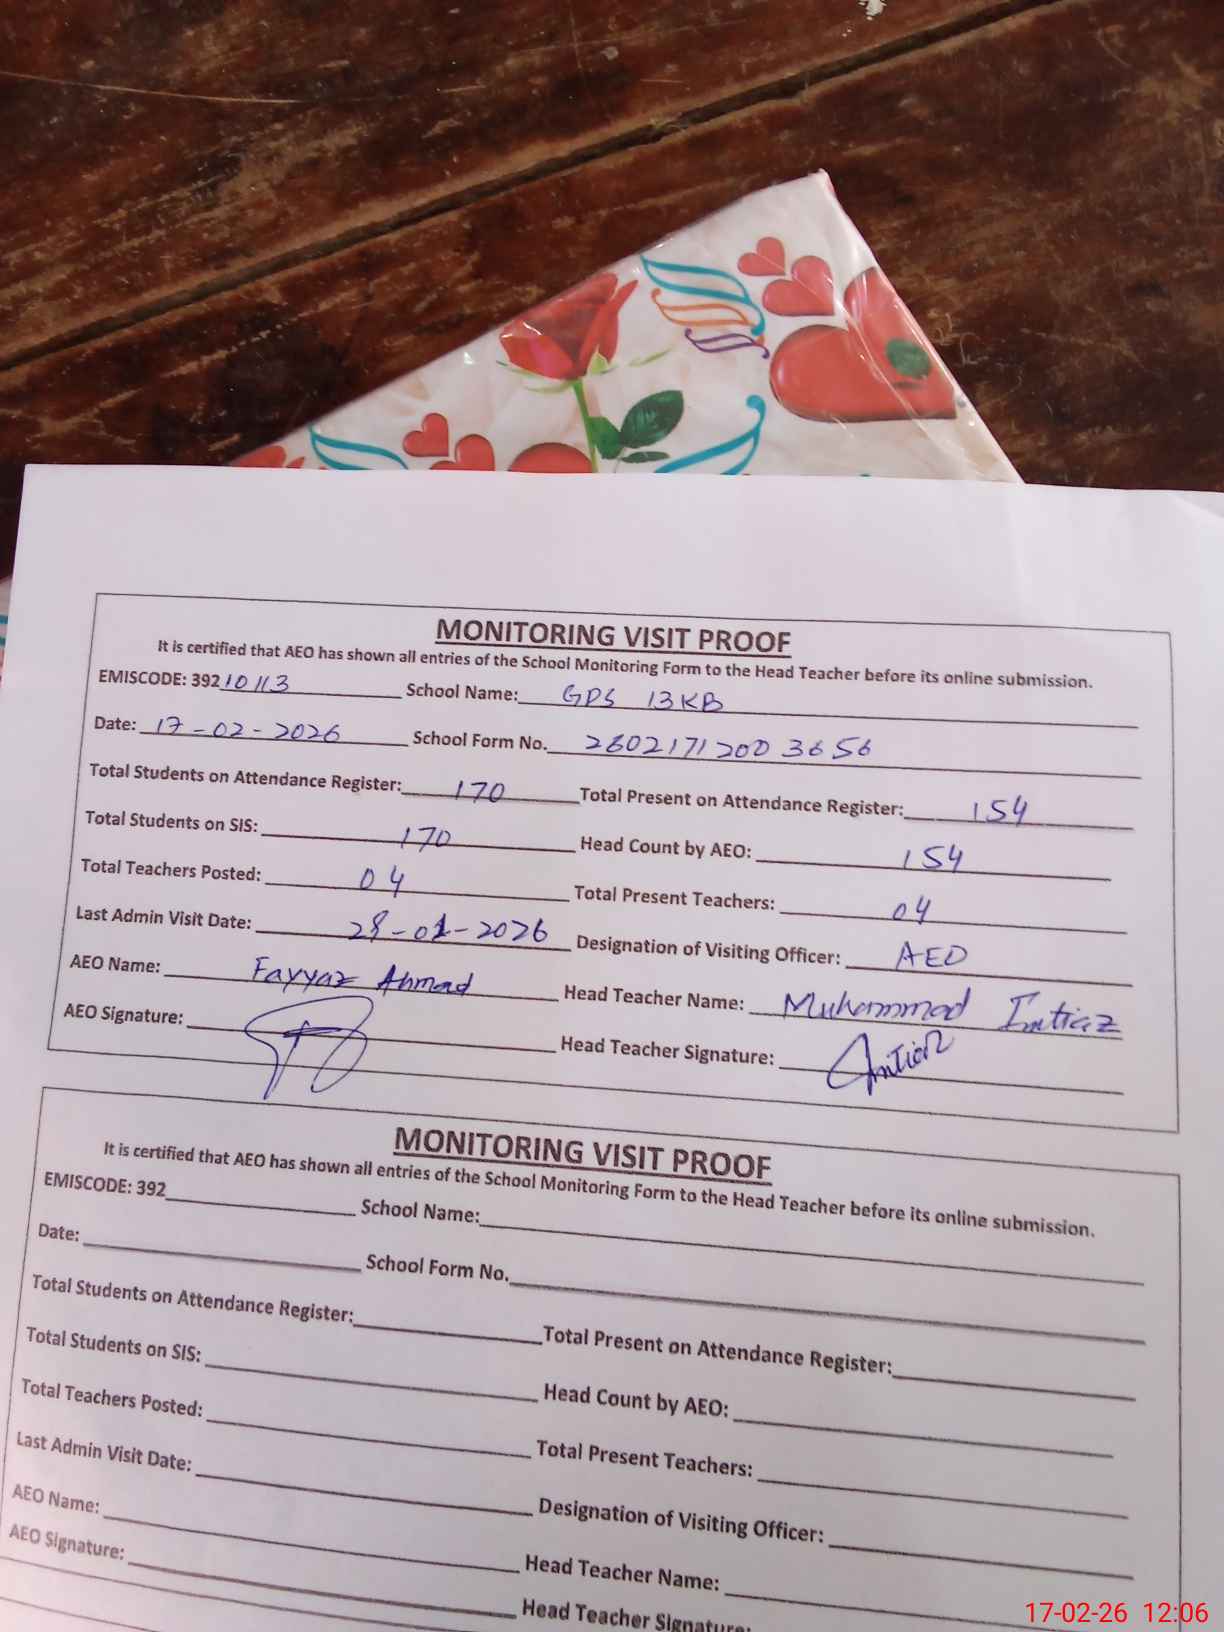 MONITORING VISIT PROOF
It is certified that AEO has shown all entries of the School Monitoring Form to the Head Teacher before its online submission.
EMISCODE: 39210113 School Name: GPS 13KB
Date: 17-02-2026 School Form No. 2602171200 3656
Total Students on Attendance Register: 170 Total Present on Attendance Register: 154
Total Students on SIS: 170 Head Count by AEO: 154
Total Teachers Posted: 04 Total Present Teachers: 04
Last Admin Visit Date: 28-01-2026 Designation of Visiting Officer: AEO
AEO Name: Fayyaz Ahmad Head Teacher Name: Muhammad Imtiaz
AEO Signature: Head Teacher Signature: Imtiaz
MONITORING VISIT PROOF
It is certified that AEO has shown all entries of the School Monitoring Form to the Head Teacher before its online submission.
EMISCODE: 392 School Name:
Date: School Form No.
Total Students on Attendance Register: Total Present on Attendance Register:
Total Students on SIS: Head Count by AEO:
Total Teachers Posted: Total Present Teachers:
Last Admin Visit Date: Designation of Visiting Officer:
AEO Name: Head Teacher Name:
AEO Signature: Head Teacher Signature:
17-02-26 12:06